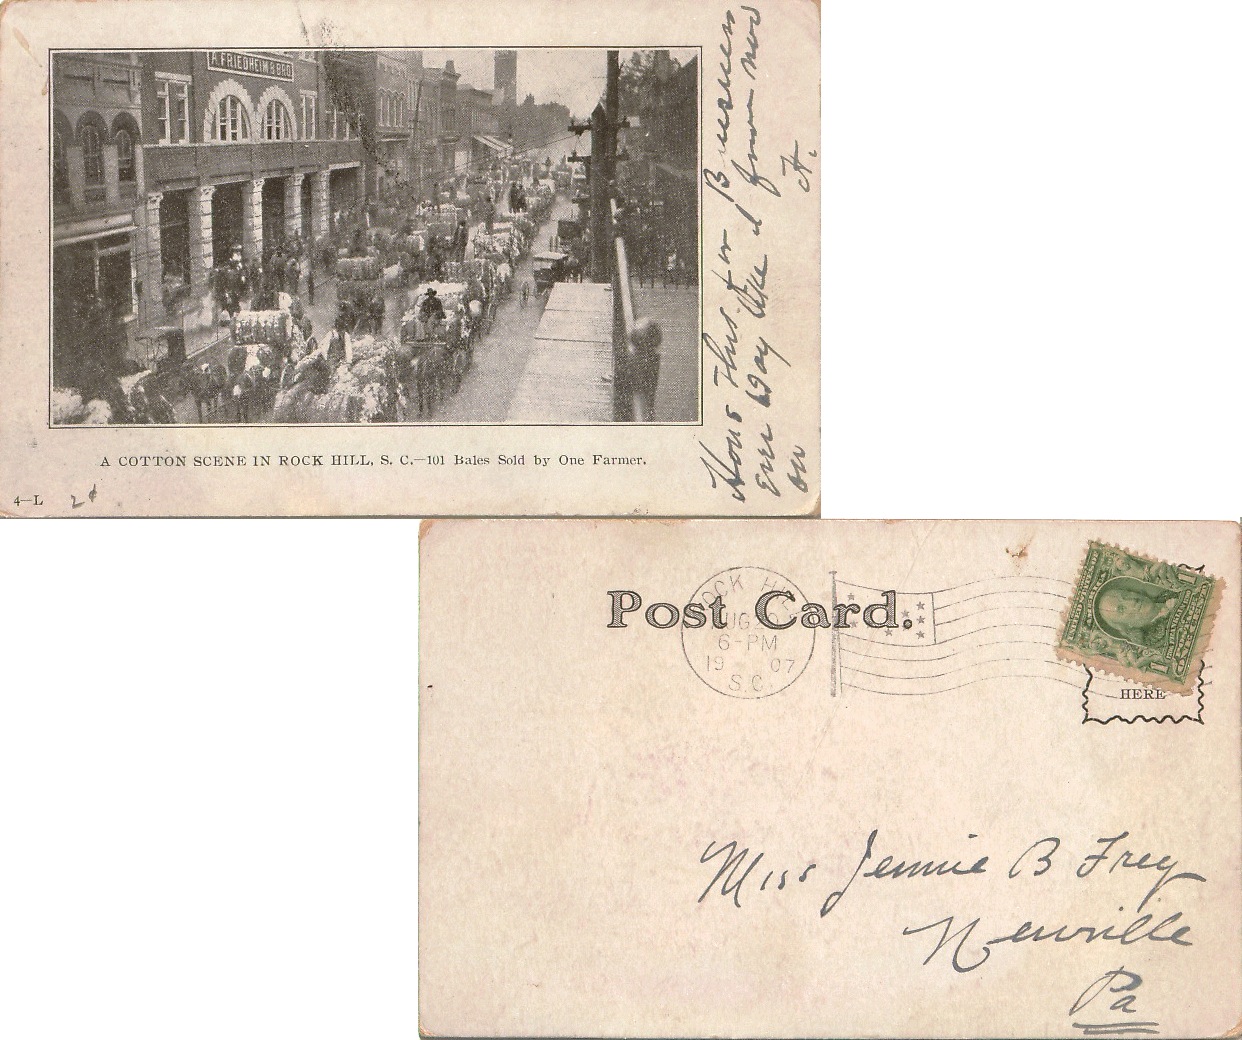 A. FRIEDHEIM & BRO.
A COTTON SCENE IN ROCK HILL, S. C.—101 Bales Sold by One Farmer.
4—L 2¢
Hows this for Buisness
Eny Way Use d from now
on
Post Card.
ROCK HILL
AUG
6-PM
1907
S.C.
1 1
HERE
Miss Jennie B Frey
Newville
Pa